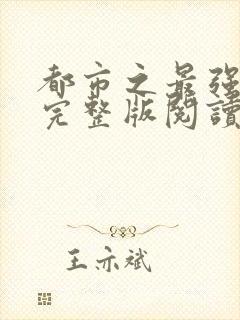 都市之最强
完整版阅读
王亦斌